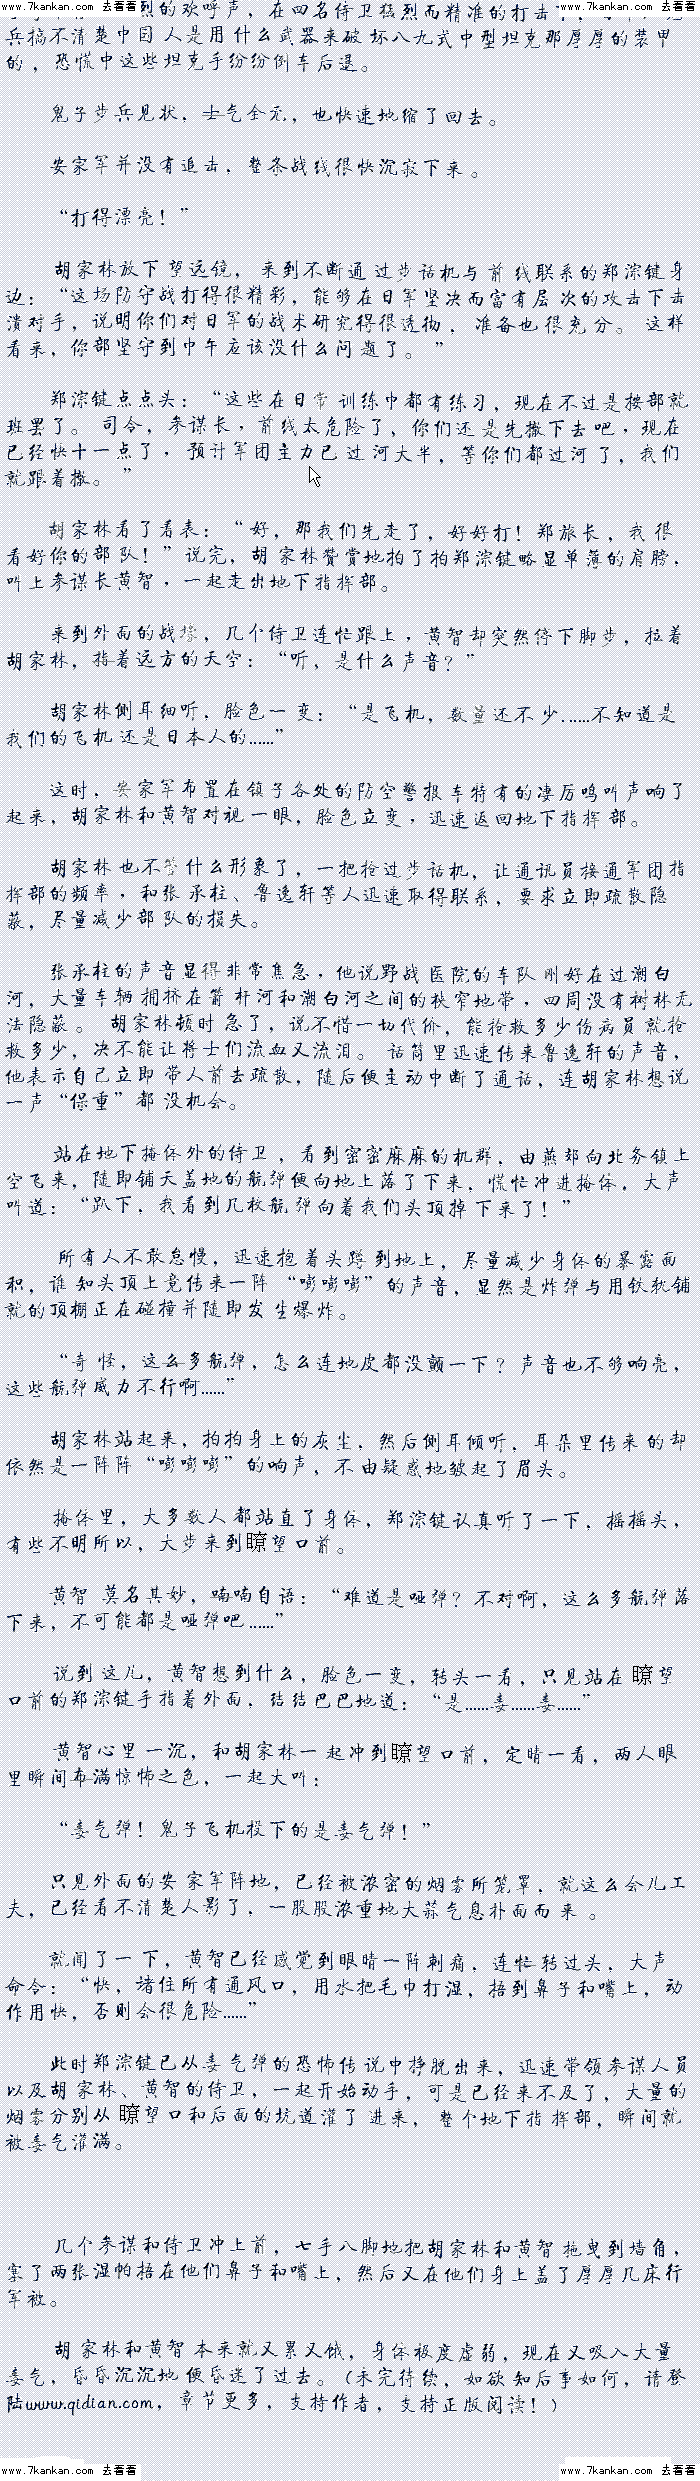 www.7kankan.com 去看看 www.7kankan.com 去看看
烈的欢呼声，在四名侍卫猛烈而精准的打击
兵搞不清楚中国人是用什么武器来破坏八九式中型坦克那厚厚的装甲
的，恐慌中这些坦克手纷纷倒车后退。
鬼子步兵见状，士气全无，也快速地缩了回去。
安家军并没有追击，整条战线很快沉寂下来。
“打得漂亮！”
胡家林放下望远镜，来到不断通过步话机与前线联系的郑淙键身
边：“这场防守战打得很精彩，能够在日军坚决而富有层次的攻击下击
溃对手，说明你们对日军的战术研究得很透彻，准备也很充分。这样
看来，你部坚守到中午应该没什么问题了。”
郑淙键点点头：“这些在日常训练中都有练习，现在不过是按部就
班罢了。司令，参谋长，前线太危险了，你们还是先撤下去吧，现在
已经快十一点了，预计军团主力已过河大半，等你们都过河了，我们
就跟着撤。”
胡家林看了看表：“好，那我们先走了，好好打！郑旅长，我很
看好你的部队！”说完，胡家林赞赏地拍了拍郑淙键略显单薄的肩膀，
叫上参谋长黄智，一起走出地下指挥部。
来到外面的战壕，几个侍卫连忙跟上，黄智却突然停下脚步，拉着
胡家林，指着远方的天空：“听，是什么声音？”
胡家林侧耳细听，脸色一变：“是飞机，数量还不少……不知道是
我们的飞机还是日本人的……”
这时，安家军布置在镇子各处的防空警报车特有的凄厉鸣叫声响了
起来，胡家林和黄智对视一眼，脸色立变，迅速返回地下指挥部。
胡家林也不管什么形象了，一把抢过步话机，让通讯员接通军团指
挥部的频率，和张承柱、鲁逸轩等人迅速取得联系，要求立即疏散隐
蔽，尽量减少部队的损失。
张承柱的声音显得非常焦急，他说野战医院的车队刚好在过潮白
河，大量车辆拥挤在箭杆河和潮白河之间的狭窄地带，四周没有树林无
法隐蔽。胡家林顿时急了，说不惜一切代价，能抢救多少伤病员就抢
救多少，决不能让将士们流血又流泪。话筒里迅速传来鲁逸轩的声音，
他表示自己立即带人前去疏散，随后便主动中断了通话，连胡家林想说
一声“保重”都没机会。
站在地下掩体外的侍卫，看到密密麻麻的机群，由燕郊向北务镇上
空飞来，随即铺天盖地的航弹便向地上落了下来，慌忙冲进掩体，大声
叫道：“趴下，我看到几枚航弹向着我们头顶掉下来了！”
所有人不敢怠慢，迅速抱着头蹲到地上，尽量减少身体的暴露面
积，谁知头顶上竟传来一阵“嘭嘭嘭”的声音，显然是炸弹与用铁轨铺
就的顶棚正在碰撞并随即发生爆炸。
“奇怪，这么多航弹，怎么连地皮都没颤一下？声音也不够响亮，
这些航弹威力不行啊……”
胡家林站起来，拍拍身上的灰尘，然后侧耳倾听，耳朵里传来的却
依然是一阵阵“嘭嘭嘭”的响声，不由疑惑地皱起了眉头。
掩体里，大多数人都站直了身体，郑淙键认真听了一下，摇摇头，
有些不明所以，大步来到瞭望口前。
黄智莫名其妙，喃喃自语：“难道是哑弹？不对啊，这么多航弹落
下来，不可能都是哑弹吧……”
说到这儿，黄智想到什么，脸色一变，转头一看，只见站在瞭望
口前的郑淙键手指着外面，结结巴巴地道：“是……毒……毒……”
黄智心里一沉，和胡家林一起冲到瞭望口前，定睛一看，两人眼
里瞬间布满惊怖之色，一起大叫：
“毒气弹！鬼子飞机投下的是毒气弹！”
只见外面的安家军阵地，已经被浓密的烟雾所笼罩，就这么会儿工
夫，已经看不清楚人影了，一股股浓重地大蒜气息扑面而来。
就闻了一下，黄智已经感觉到眼睛一阵刺痛，连忙转过头，大声
命令：“快，堵住所有通风口，用水把毛巾打湿，捂到鼻子和嘴上，动
作用快，否则会很危险……”
此时郑淙键已从毒气弹的恐怖传说中挣脱出来，迅速带领参谋人员
以及胡家林、黄智的侍卫，一起开始动手，可是已经来不及了，大量的
烟雾分别从瞭望口和后面的坑道灌了进来，整个地下指挥部，瞬间就
被毒气灌满。
几个参谋和侍卫冲上前，七手八脚地把胡家林和黄智拖曳到墙角，
塞了两张湿帕捂在他们鼻子和嘴上，然后又在他们身上盖了厚厚几床行
军被。
胡家林和黄智本来就又累又饿，身体极度虚弱，现在又吸入大量
毒气，昏昏沉沉地便昏迷了过去。（未完待续，如欲知后事如何，请登
陆www.qidian.com，章节更多，支持作者，支持正版阅读！）
www.7kankan.com 去看看 www.7kankan.com 去看看